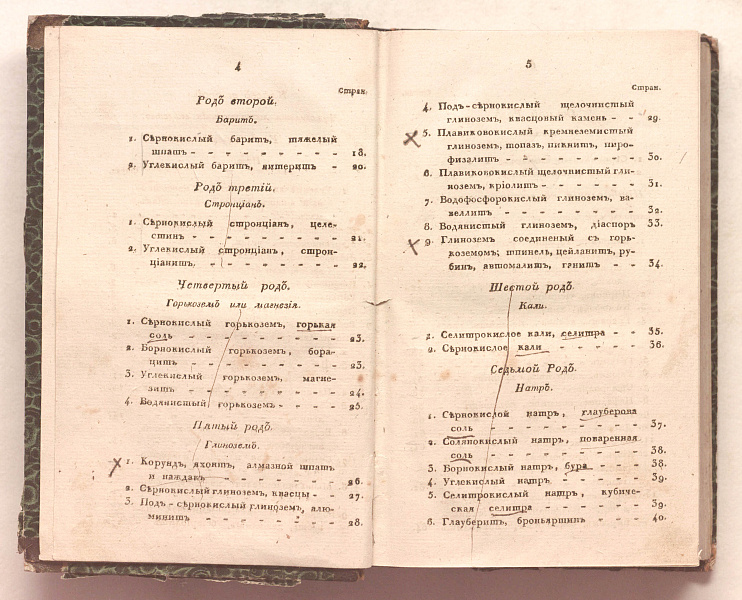 4
Стран.
Родъ второй.
Баритъ.
1. Сѣрнокислый баритъ, тяжелый
шпатъ - - - - - - - - 18.
2. Углекислый баритъ, витеритъ - 20.
Родъ третій.
Стронціанъ.
1. Сѣрнокислый стронціанъ, целе-
стинъ - - - - - - - - 21.
2. Углекислый стронціанъ, строн-
ціанитъ. - - - - - - - 22.
Четвертый родъ.
Горькоземъ или магнезія.
1. Сѣрнокислый горькоземъ, горькая
соль - - - - - - - - 23.
2. Борнокислый горькоземъ, бора-
цитъ - - - - - - - - 23.
3. Углекислый горькоземъ, магне-
зитъ - - - - - - - - 24.
4. Водянистый горькоземъ - - - - 25.
Пятый родъ.
Глиноземъ.
1. Корундъ, яхонтъ, алмазной шпатъ
и наждакъ - - - - - - - 26.
2. Сѣрнокислый глиноземъ, квасцы - - 27.
3. Подъ-сѣрнокислый глиноземъ, алю-
минитъ - - - - - - - - 28.
5
Стран.
4. Подъ-сѣрнокислый щелочнистый
глиноземъ, квасцовый камень - - 29.
5. Плавиковокислый кремнеземистый
глиноземъ, топазъ, пикнитъ, пиро-
физалитъ - - - - - - - 30.
6. Плавиковокислый щелочнистый гли-
ноземъ, кріолитъ - - - - - 31.
7. Водофосфорокислый глиноземъ, ва-
веллитъ - - - - - - - - 32.
8. Водянистый глиноземъ, діаспоръ 33.
9. Глиноземъ соединеный съ горь-
коземомъ; шпинель, цейланитъ, ру-
бинъ, автомалитъ, ганитъ - - 34.
Шестой родъ.
Кали.
1. Селитрокислое кали, селитра - - 35.
2. Сѣрнокислое кали - - - - - 36.
Седьмой Родъ.
Натръ.
1. Сѣрнокислой натръ, глауберова
соль - - - - - - - - 37.
2. Солянокислый натръ, поваренная
соль - - - - - - - - 38.
3. Борнокислый натръ, бура - - - 38.
4. Углекислый натръ - - - - - 39.
5. Селитрокислый натръ, кубиче-
ская селитра - - - - - - 39.
6. Глауберитъ, броньяртинъ - - - 40.